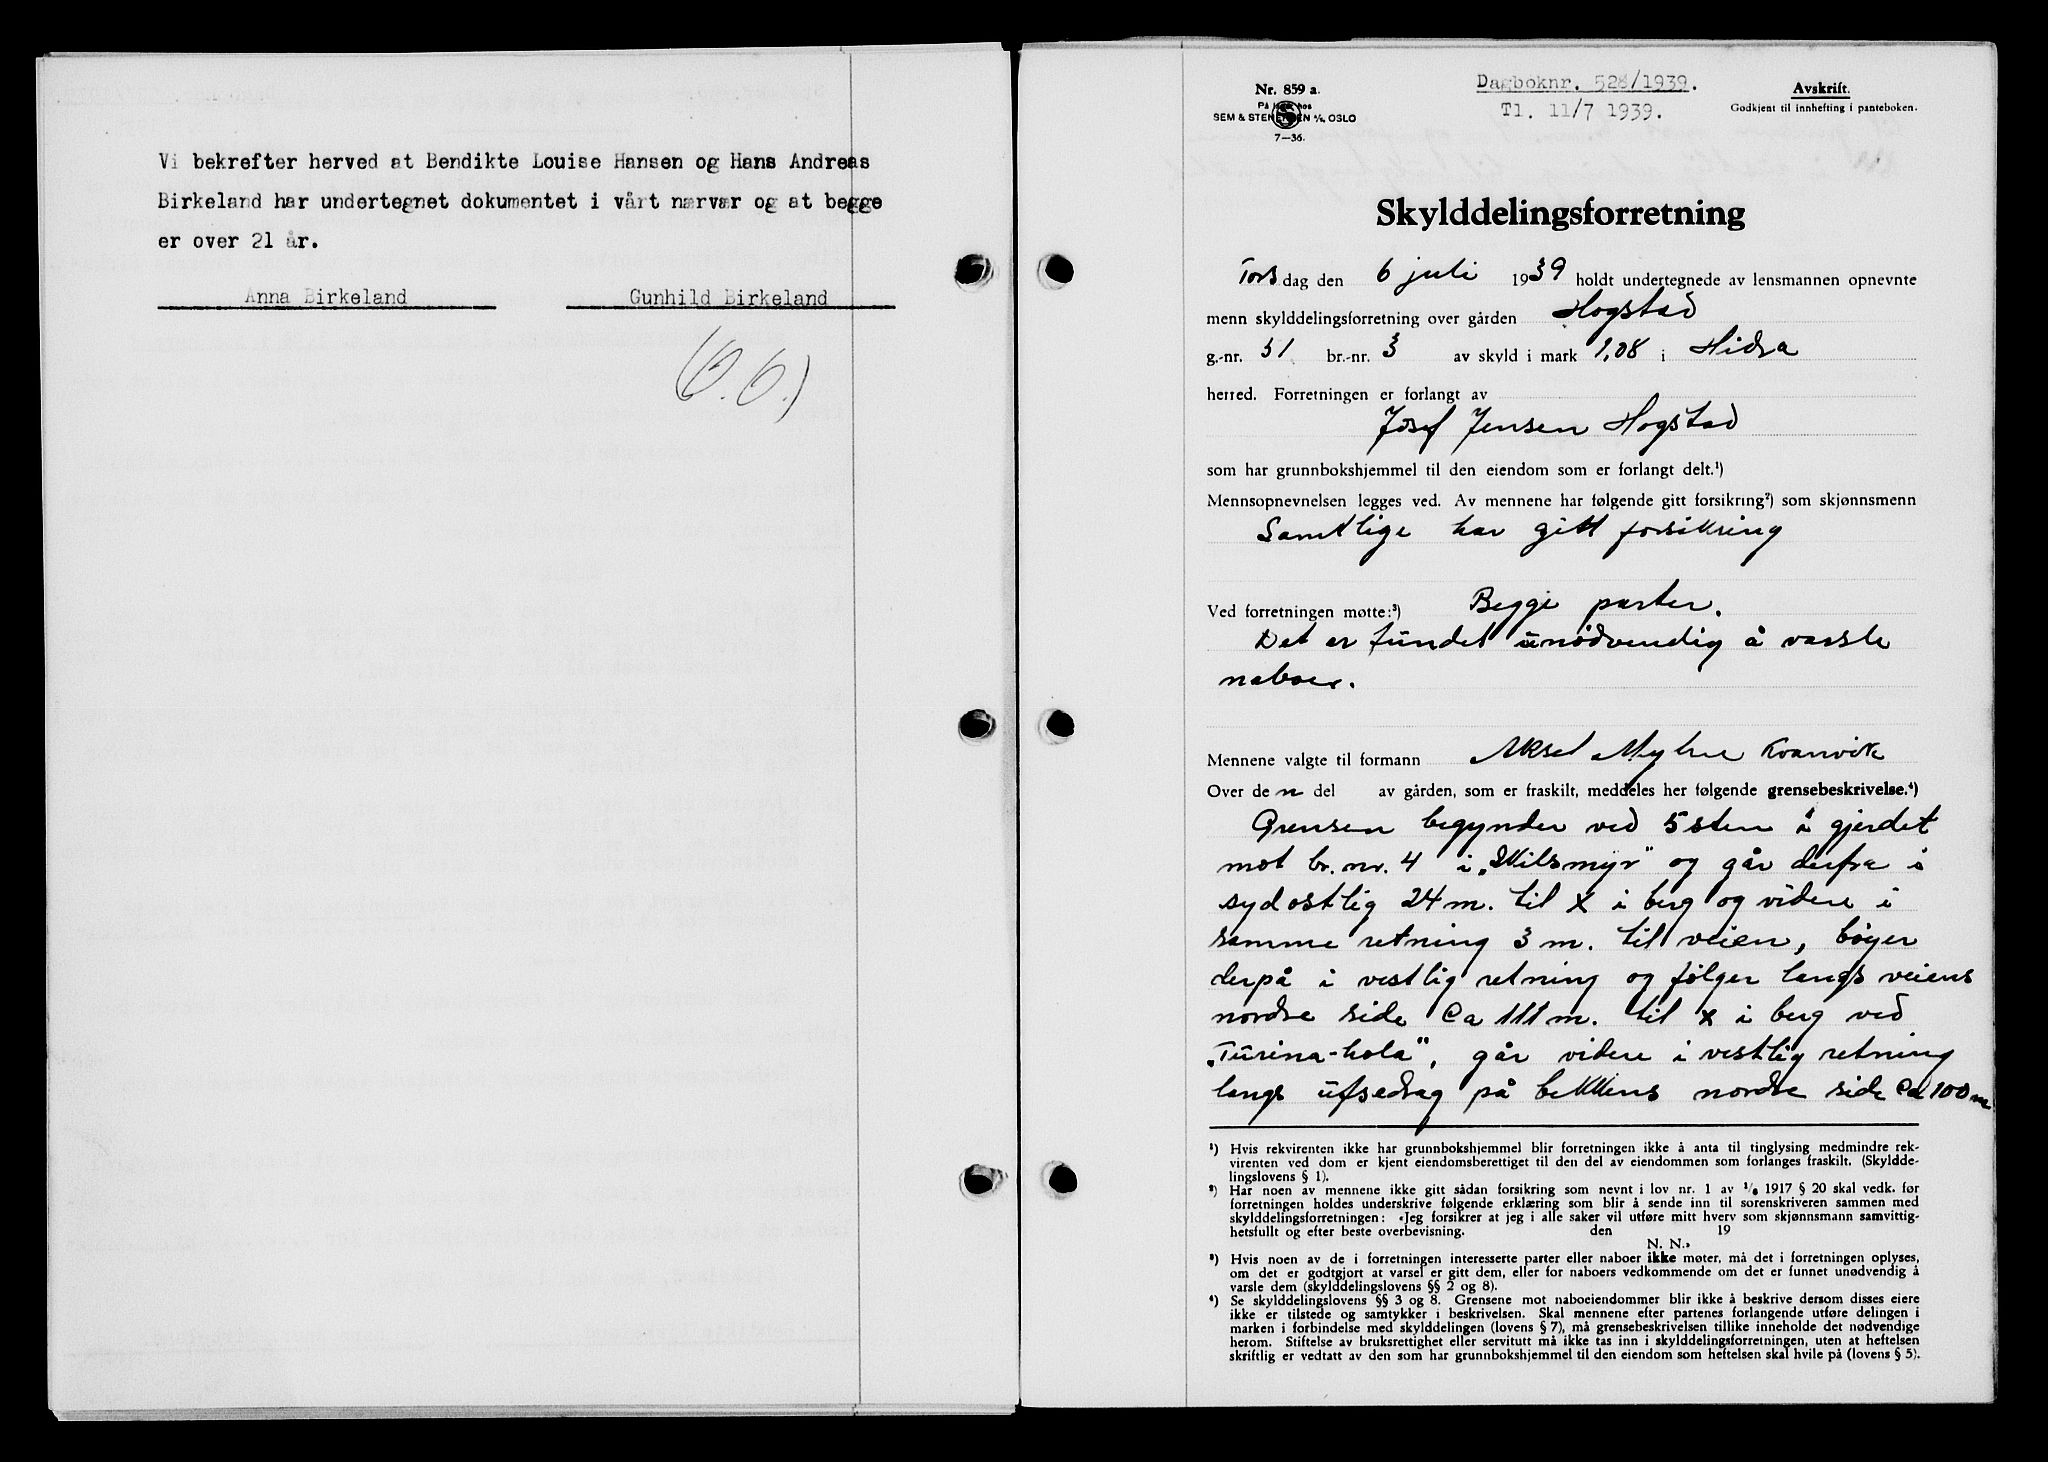 Vi bekrefter herved at Bendikte Louise Hansen og Hans Andreas
Birkeland har undertegnet dokumentet i vårt nærvær og at begge
er over 21 år.
Anna Birkeland Gunhild Birkeland
Nr. 859 a.
På lager hos
SEM & STENERSEN A/S, OSLO
7—36.
Dagboknr. 528/1939.
Tl. 11/7 1939.
Avskrift.
Godkjent til innhefting i panteboken.
Skylddelingsforretning
Torsdag den 6 juli 1939 holdt undertegnede av lensmannen opnevnte
menn skylddelingsforretning over gården Hogstad
g.-nr. 51 br.-nr. 3 av skyld i mark 1,08 i Hidra
herred. Forretningen er forlangt av
Josef Jensen Hogstad
som har grunnbokshjemmel til den eiendom som er forlangt delt.¹)
Mennsopnevnelsen legges ved. Av mennene har følgende gitt forsikring²) som skjønnsmenn
Samtlige har gitt forsikring
Ved forretningen møtte:³) Begge parter.
Det er fundet unødvendig å varsle
naboer.
Mennene valgte til formann Aksel Myhre Kvanvik
Over de n del av gården, som er fraskilt, meddeles her følgende grensebeskrivelse.⁴)
Grensen begynder ved 5 sten i gjerdet
mot br. nr. 4 i „Skilsmyr" og går derfra i
sydostlig 24 m. til X i berg og videre i
samme retning 3 m. til veien, bøyer
derpå i vestlig retning og følger langs veiens
nordre side Ca 111 m. til x i berg ved
„Turina-hola", går videre i vestlig retning
langs ufsedrag på bekkens nordre side Ca 100 m
¹) Hvis rekvirenten ikke har grunnbokshjemmel blir forretningen ikke å anta til tinglysing medmindre rek-
virenten ved dom er kjent eiendomsberettiget til den del av eiendommen som forlanges fraskilt. (Skyldde-
lingslovens § 1).
²) Har noen av mennene ikke gitt sådan forsikring som nevnt i lov nr. 1 av 1/6 1917 § 20 skal vedk. før
forretningen holdes underskrive følgende erklæring som blir å sende inn til sorenskriveren sammen med
skylddelingsforretningen: «Jeg forsikrer at jeg i alle saker vil utføre mitt hverv som skjønnsmann samvittig-
hetsfullt og efter beste overbevisning. den 19
N. N.»
³) Hvis noen av de i forretningen interesserte parter eller naboer ikke møter, må det i forretningen oplyses,
om det er godtgjort at varsel er gitt dem, eller for naboers vedkommende om det er funnet unødvendig å
varsle dem (skylddelingslovens §§ 2 og 8).
⁴) Se skylddelingslovens §§ 3 og 8. Grensene mot naboeiendommer blir ikke å beskrive dersom disses eiere
ikke er tilstede og samtykker i beskrivelsen. Skal mennene efter partenes forlangende utføre delingen i
marken i forbindelse med skylddelingen (lovens § 7), må grensebeskrivelsen tillike inneholde det nødvendige
herom. Stiftelse av bruksrettighet eller servitutt må ikke tas inn i skylddelingsforretningen, uten at heftelsen
skriftlig er vedtatt av den som har grunnbokshjemmel til den eiendom som heftelsen skal hvile på (lovens § 5).